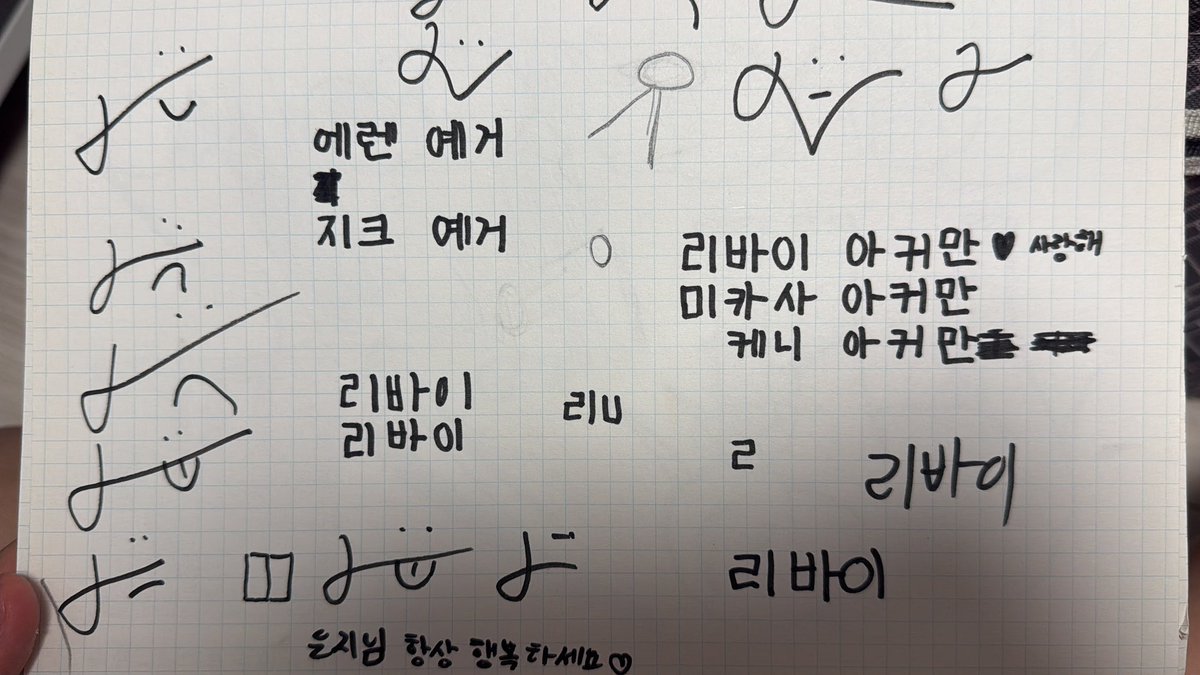 에렌 예거
지크 예거
리바이 아커만 ♥ 사랑해
미카사 아커만
케니 아커만
리바이
리바이
리ㅂ
ㄹ
리바이
리바이
은지님 항상 행복하세요♡